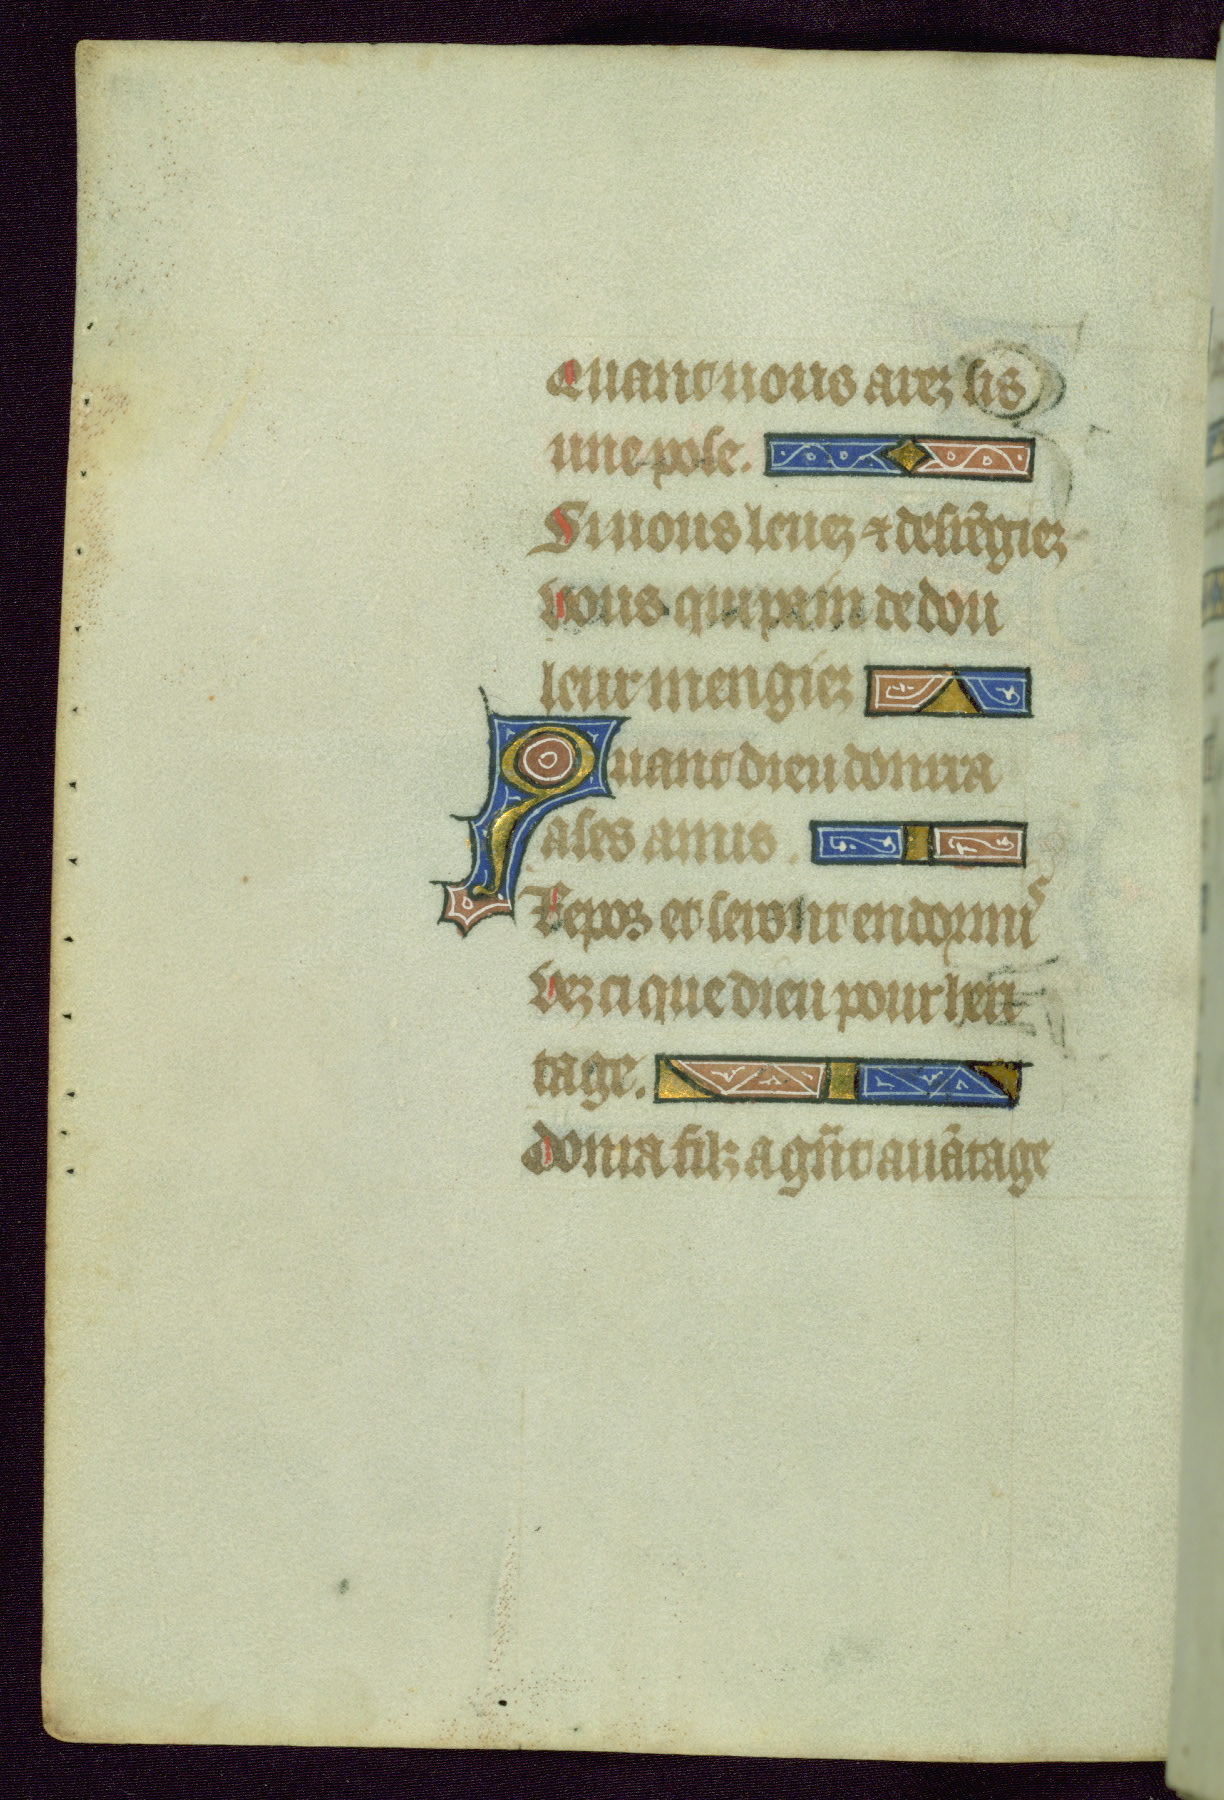 Quant uous arez sis
une pose.
Si uous leuez ⁊ desiregiez
vous qui pain de dou
leur mengiez
Quant dieu donrra
a ses amis.
Repoz et seront endormis
vez ci que dieu pour heri
tage.
donra filz a gñt auãtage